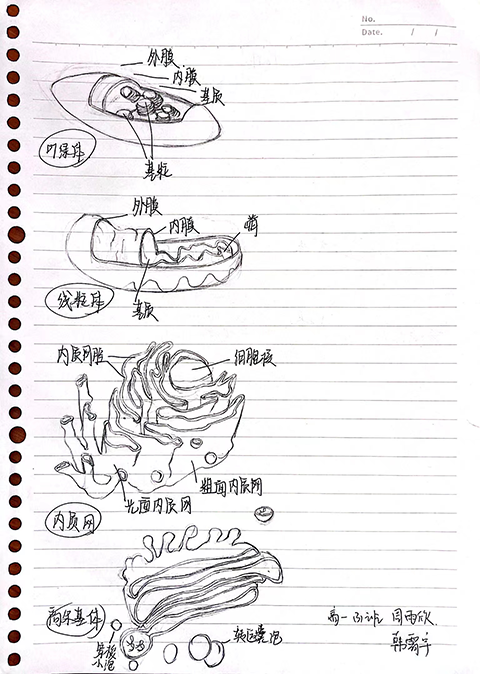 No.
Date. / /
外膜
内膜
基质
叶绿体
基粒
外膜
内膜
嵴
线粒体
基质
内质网腔
细胞核
粗面内质网
光面内质网
内质网
高尔基体
转运囊泡
小泡
高一
周雨欣
韩雪宇